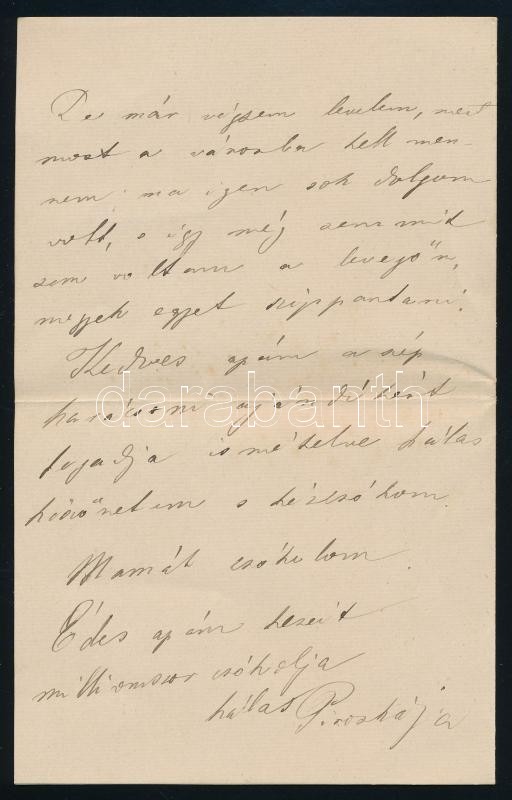 De már végzem levelem, mert
most a városba kell men-
nem; ma igen sok dolgom
volt, s így még semmit
sem voltam a levegőn,
megyek egyet szippantani.
Kedves apám a szép
karácsoni ajándékért
fogadja ismételve hálás
köszönetem s kézcsókom.
Mamát csókolom.
Édes apám kezeit
milliomszor csókolja
hálás Piroskája
darabanth